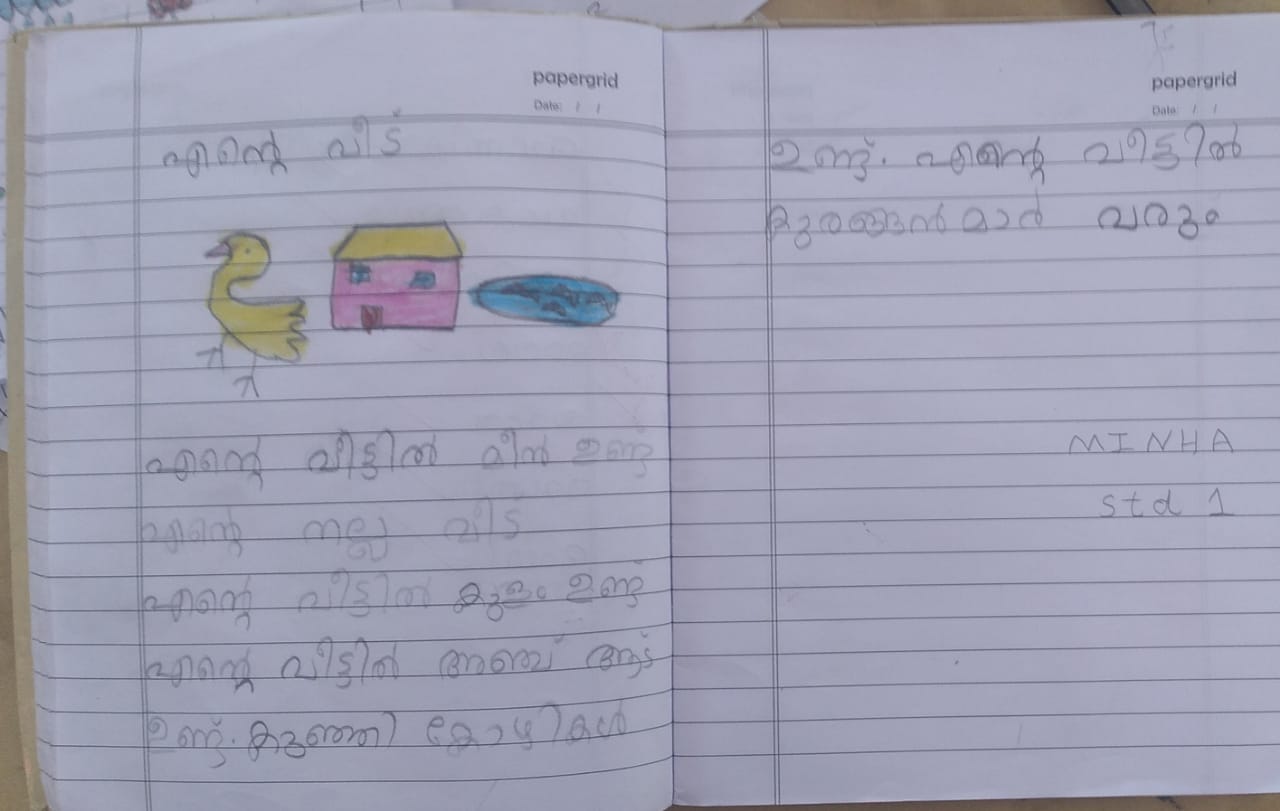 papergrid
Date: / /
എന്റെ വീട്
എന്റെ വീട്ടിൽ മീൻ ഉണ്ട്
എന്റെ നല്ല വീട്
എന്റെ വീട്ടിൽ കുളം ഉണ്ട്
എന്റെ വീട്ടിൽ അഞ്ച് ആട്
ഉണ്ട്. കുഞ്ഞി കോഴികൾ
papergrid
Date: / /
ഉണ്ട്. എന്റെ വീട്ടിൽ
കുരങ്ങൻമാൻ വരും
MINHA
std 1